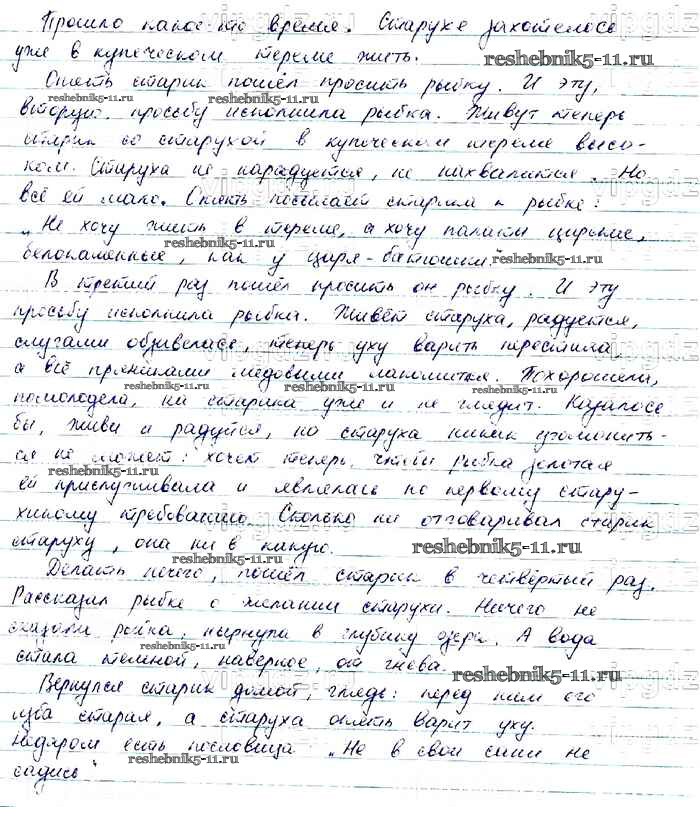 Прошло какое-то время. Старухе захотелось
уже в купеческом тереме жить.
reshebnik5-11.ru
Опять старик пошёл просить рыбку. И эту,
reshebnik5-11.ru reshebnik5-11.ru
вторую просьбу исполнила рыбка. Живут теперь
старик со старухой в купеческом тереме высо-
ком. Старуха не нарадуется, не нахвалится. Но
всё ей мало. Опять посылает старика к рыбке:
„Не хочу жить в тереме, а хочу палаты царские,
reshebnik5-11.ru
белокаменные, как у царя-батюшки"
reshebnik5-11.ru
В третий раз пошёл просить он рыбку. И эту
просьбу исполнила рыбка. Живёт старуха, радуется,
слугами обзавелась, теперь уху варить перестала,
а всё пряниками медовыми лакомится. Похорошела,
reshebnik5-11.ru reshebnik5-11.ru reshebnik5-11.ru
помолодела, на старика уже и не глядит. Казалось
бы, живи и радуйся, но старуха никак угомонить-
ся не может: хочет теперь, чтобы рыбка золотая
reshebnik5-11.ru
ей прислуживала и являлась по первому стару-
хиному требованию. Сколько ни отговаривал старик
старуху, она ни в какую.
reshebnik5-11.ru
reshebnik5-11.ru
Делать нечего, пошёл старик в четвёртый раз.
Рассказал рыбке о желании старухи. Ничего не
сказала рыбка, нырнула в глубину озера. А вода
стала темной, наверное, от гнева.
reshebnik5-11.ru
reshebnik5-11.ru
Вернулся старик домой, глядь: перед ним его
изба старая, а старуха опять варит уху.
Недаром есть пословица „Не в свои сани не
садись"
reshebnik5-11.ru